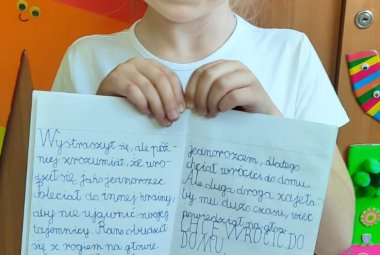 Wystraszył się, ale póź-
niej zrozumiał, że uro-
dził się jako jednorożec.
Poleciał do innej krainy,
aby nie ujawnić swojej
tajemnicy. Rano obudził
się z rogiem na głowie
jednorożcem, dlatego
chciał wrócić do domu.
Ale długa droga zajęła-
by mu dużo czasu, więc
powiedział na głos
CHCĘ WRÓCIĆ DO
DOMU